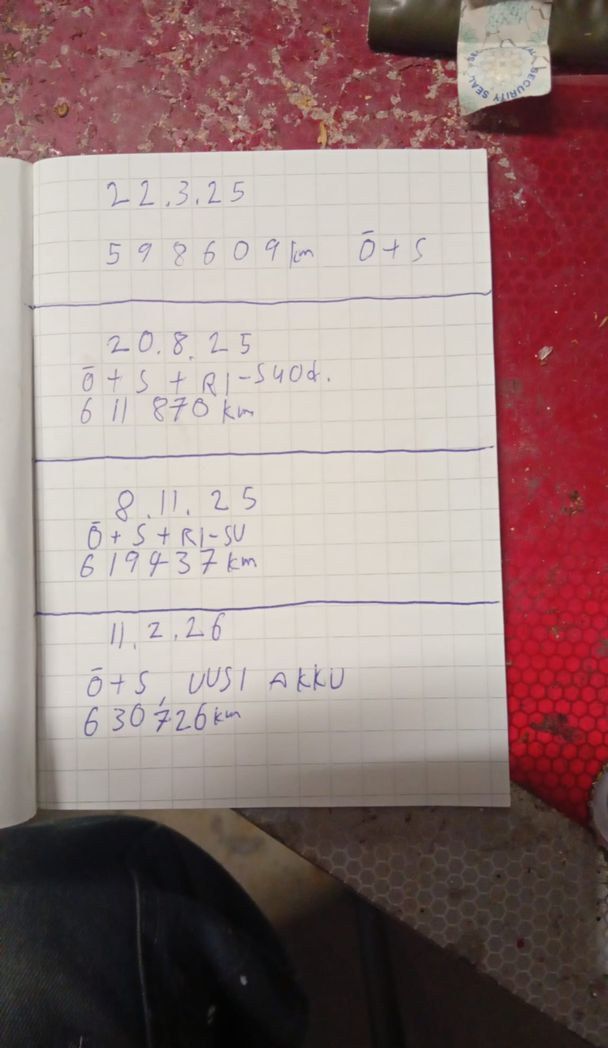 SECURITY SEAL
22.3.25
598609 km Ö+S
20.8.25
Ö+S+RI-SUOd.
611 870 km
8.11.25
Ö+S+RI-SU
619437 km
11.2.26
Ö+S, UUSI AKKU
630726 km